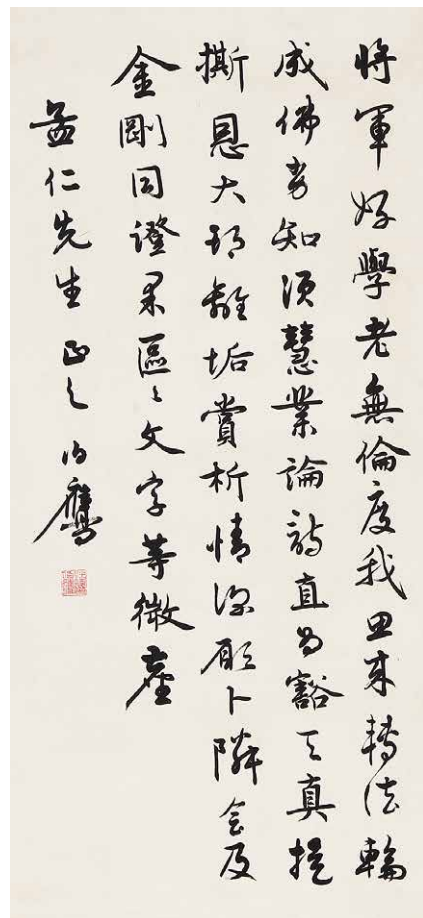 將軍好學老無倫度我來轉法輪
成佛知須慧業論詩直為豁天真提
撕恩大離垢賞析情深願卜隣會及
金剛同證果區〻文字等微塵
孟仁先生正之 伯鷹